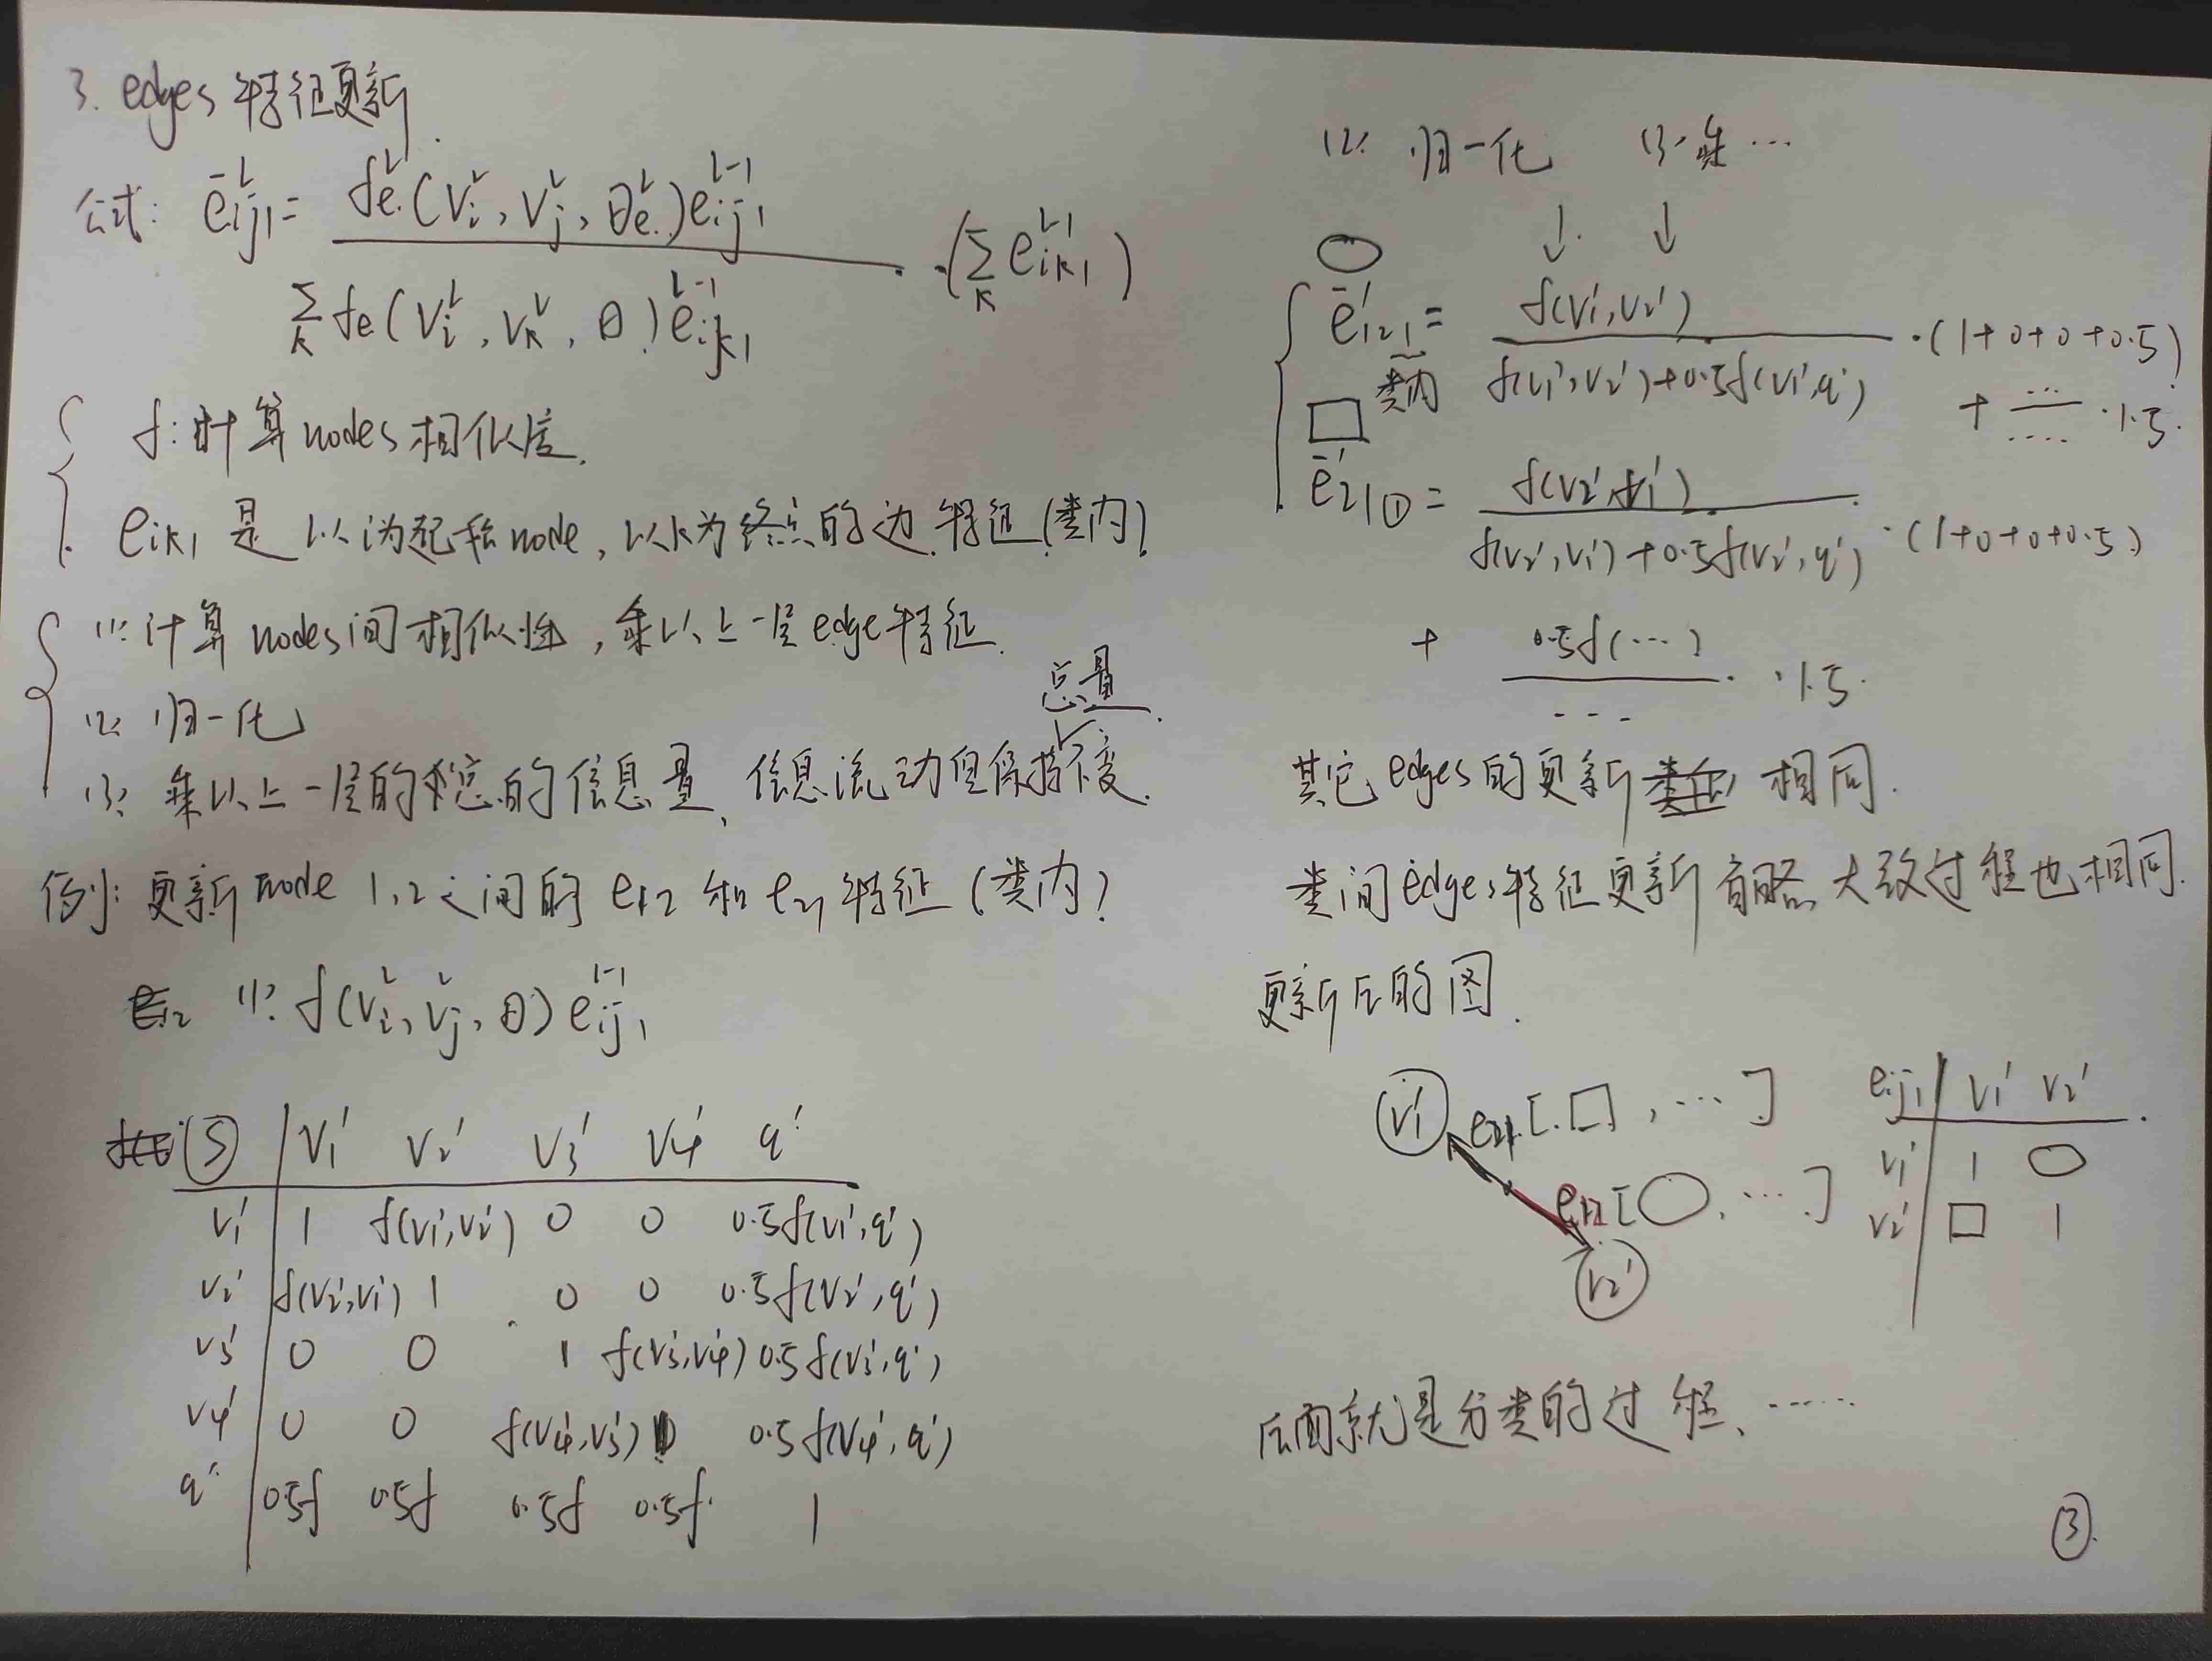 3. edges 特征更新.
公式: ē^L_{ij1} = f_e^L(V_i^L, V_j^L, θ_e^L) e_{ij1}^{L-1} / Σ_k f_e(V_i^L, V_k^L, θ) e_{ijk1}^{L-1} · (Σ_k e_{ik1}^{L-1})
f: 计算nodes相似度.
e_{ik1} 是以i为起始node, 以k为终点的边特征(类内)
(1): 计算nodes间相似性, 乘以上一层edge特征.
(2): 归一化
总量
(3): 乘以上一层的总的信息量, 信息流动但保持不变.
例: 更新node 1,2之间的 e12 和 e21 特征 (类内)
(1): f(V_i^L, V_j^L, θ) e_{ij1}^{L-1}
(S) | V1' V2' V3' V4' q'
V1' | 1 f(V1',V2') 0 0 0.5f(V1',q')
V2' | f(V2',V1') 1 0 0 0.5f(V2',q')
V3' | 0 0 1 f(V3',V4') 0.5f(V3',q')
V4' | 0 0 f(V4',V3') 1 0.5f(V4',q')
q' | 0.5f 0.5f 0.5f 0.5f 1
(2): 归一化 (3): 乘 ...
ē'_{121} = f(V1',V2') / f(V1',V2')+0.5f(V1',q') · (1+0+0+0.5)
类内
+ ... / .... · 1.5.
ē'_{21①} = f(V2',V1') / f(V2',V1')+0.5f(V2',q') · (1+0+0+0.5)
+ 0.5f(...) / ... · 1.5.
其它edges的更新相同.
类间edges特征更新省略, 大致过程也相同.
更新后的图.
V1' e21[□, ...]
e12[○, ...]
V2'
e_{ij1} | V1' V2'
V1' | 1 ○
V2' | □ 1
后面就是分类的过程、......
③.